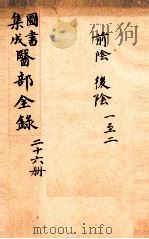 前陰 後陰 一至二
圖書
集成
醫部全錄
二十六册